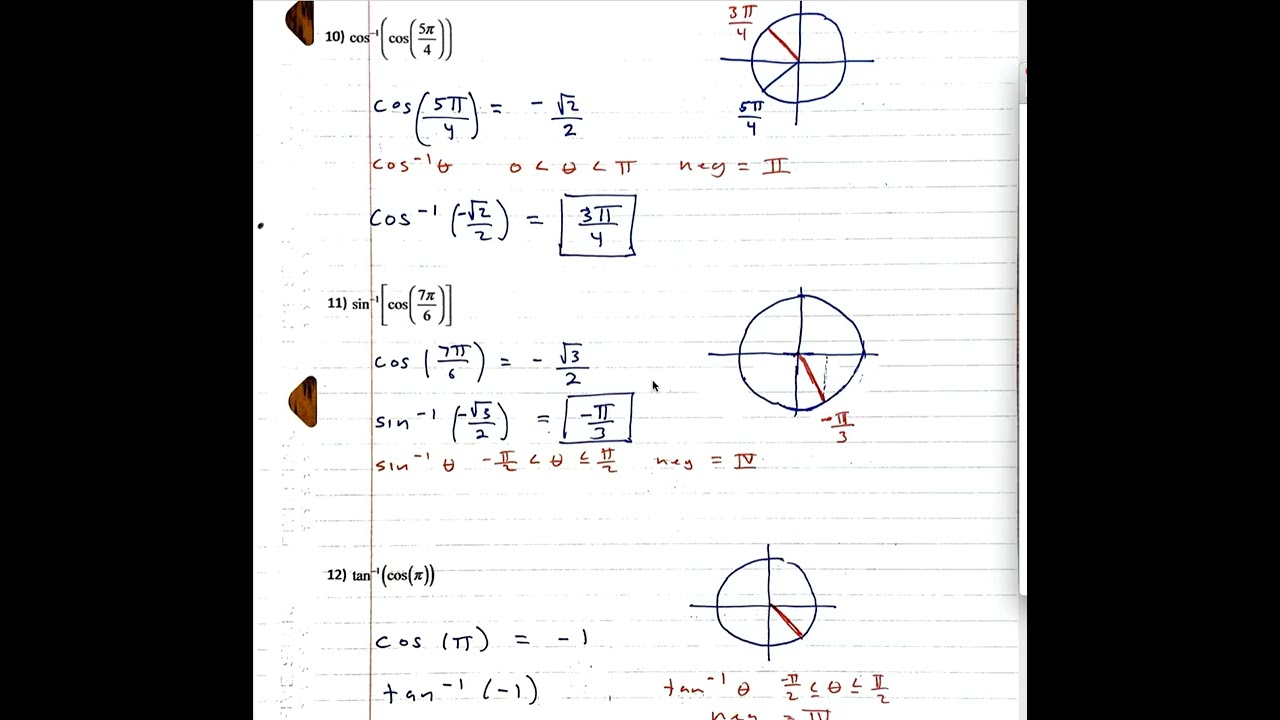 10) cos⁻¹(cos(5π/4))
3π/4
5π/4
cos(5π/4) = - √2/2
cos⁻¹θ 0 < θ < π neg = II
cos⁻¹(-√2/2) = 3π/4
11) sin⁻¹[cos(7π/6)]
cos(7π/6) = - √3/2
sin⁻¹(-√3/2) = -π/3
-π/3
sin⁻¹ θ -π/2 < θ ≤ π/2 neg = IV
12) tan⁻¹(cos(π))
cos(π) = -1
tan⁻¹(-1)
tan⁻¹ θ -π/2 ≤ θ ≤ π/2
neg = IV